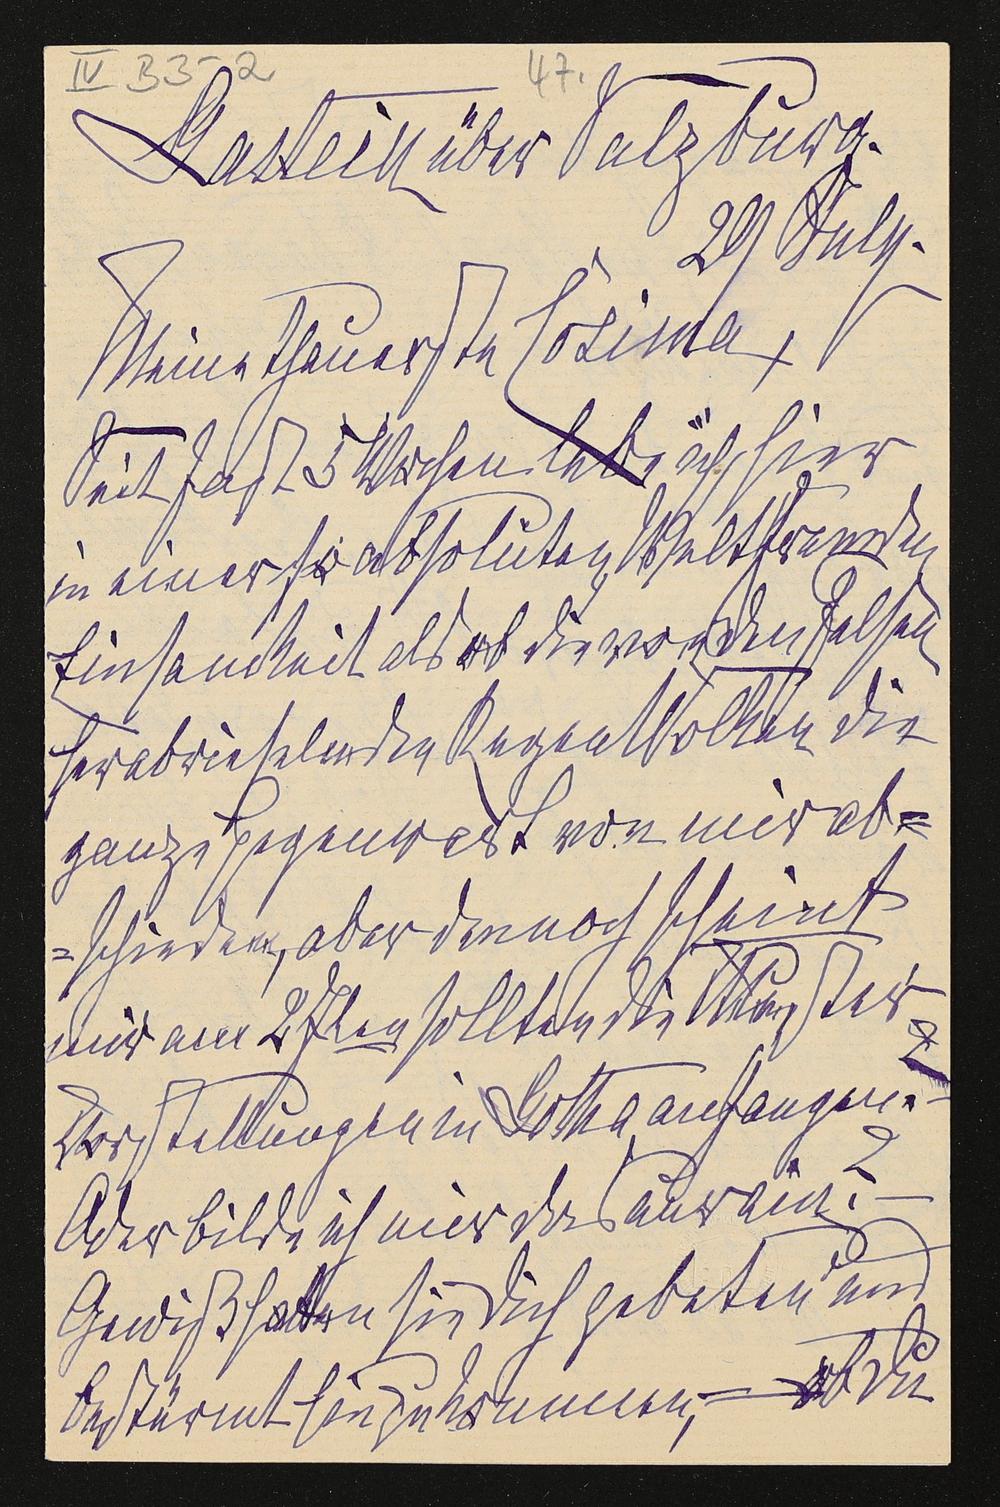 IV B 3-2 47.
Gastein über Salzburg.
29 July.
Meine theuerste Cosima,
Seit fast 5 Wochen lebe ich hier
in einer so absoluten Weltfremden
Einsamkeit als ob die von den Felsen
herabrieselnden Regenwolken die
ganze Gegenwart von mir ab=
=schieden, aber dennoch scheint
mir am 27ten sollten die Muster
Vorstellungen in Gotha anfangen.-?
Oder bilde ich mir das nur ein?—
Gewiß hatten sie Dich gebeten und
bestürmt hinzukommen,— ob Du